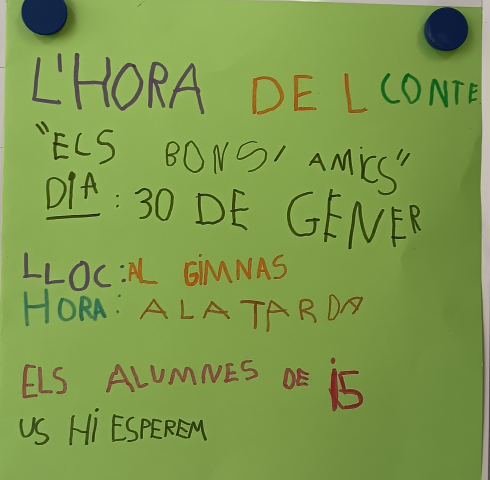 L'HORA DEL CONTE
"ELS BONS AMICS"
DIA: 30 DE GENER
LLOC: AL GIMNAS
HORA: A LA TARDA
ELS ALUMNES DE i5
US Hi ESPEREM